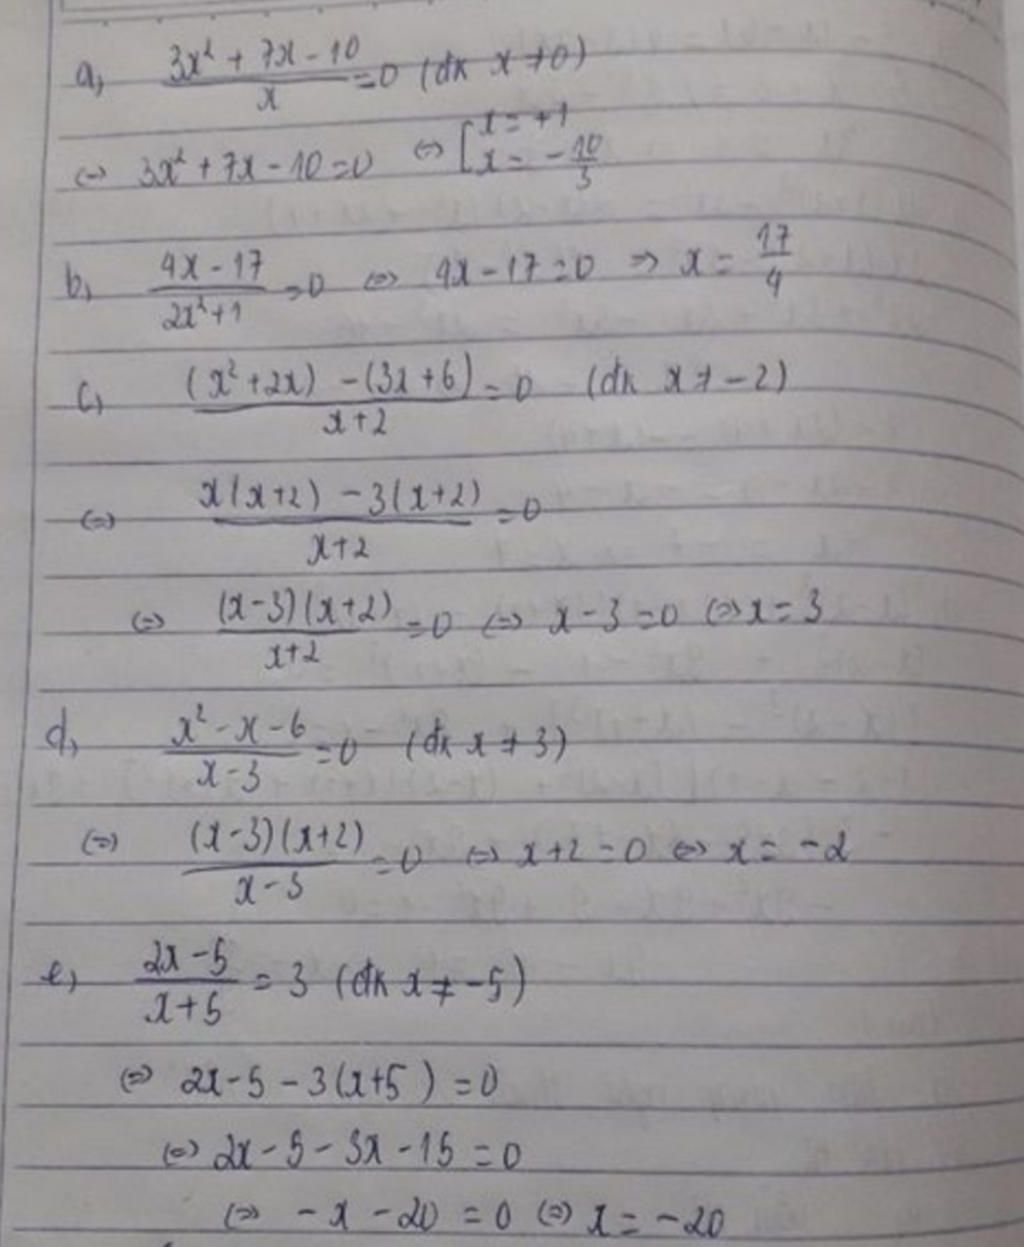 a, (3x² + 7x - 10)/x = 0 (đk x ≠ 0)
⇔ 3x² + 7x - 10 = 0 ⇔ [x = +1
x = -10/3
b, (4x - 17)/(2x² + 1) = 0 ⇔ 4x - 17 = 0 ⇒ x = 17/4
c, ((x² + 2x) - (3x + 6))/(x + 2) = 0 (đk x ≠ -2)
⇔ (x(x + 2) - 3(x + 2))/(x + 2) = 0
⇔ ((x - 3)(x + 2))/(x + 2) = 0 ⇔ x - 3 = 0 ⇔ x = 3
d, (x² - x - 6)/(x - 3) = 0 (đk x ≠ 3)
⇔ ((x - 3)(x + 2))/(x - 3) = 0 ⇔ x + 2 = 0 ⇔ x = -2
e, (2x - 5)/(x + 5) = 3 (đk x ≠ -5)
⇔ 2x - 5 - 3(x + 5) = 0
⇔ 2x - 5 - 3x - 15 = 0
⇔ -x - 20 = 0 ⇔ x = -20